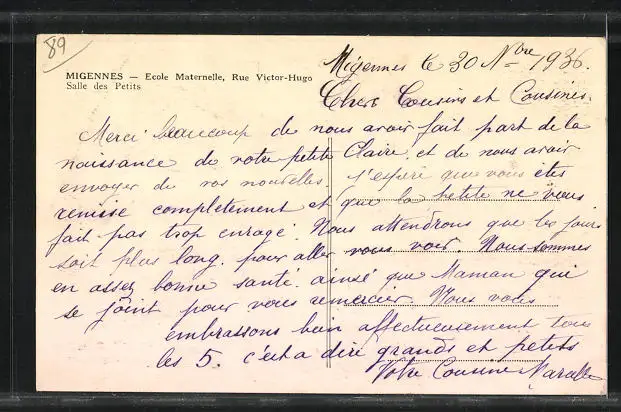 89
MIGENNES — Ecole Maternelle, Rue Victor-Hugo
Salle des Petits
Migennes le 30 Nbre 1936.
Chers Cousins et Cousines.
Merci beaucoup de nous avoir fait part de la
naissance de votre petite Claire, et de nous avoir
envoyer de vos nouvelles. J'espère que vous êtes
remise complètement et que la petite ne vous
fait pas trop enragé. Nous attendrons que les jours
soit plus long. pour aller vous voir. Nous sommes
en assez bonne santé. ainsé que Maman qui
se joint pour vous remercier. Nous vous
embrassons bien affectueusement tous
les 5. c'est a dire grands et petits
Votre Cousine Marcelle